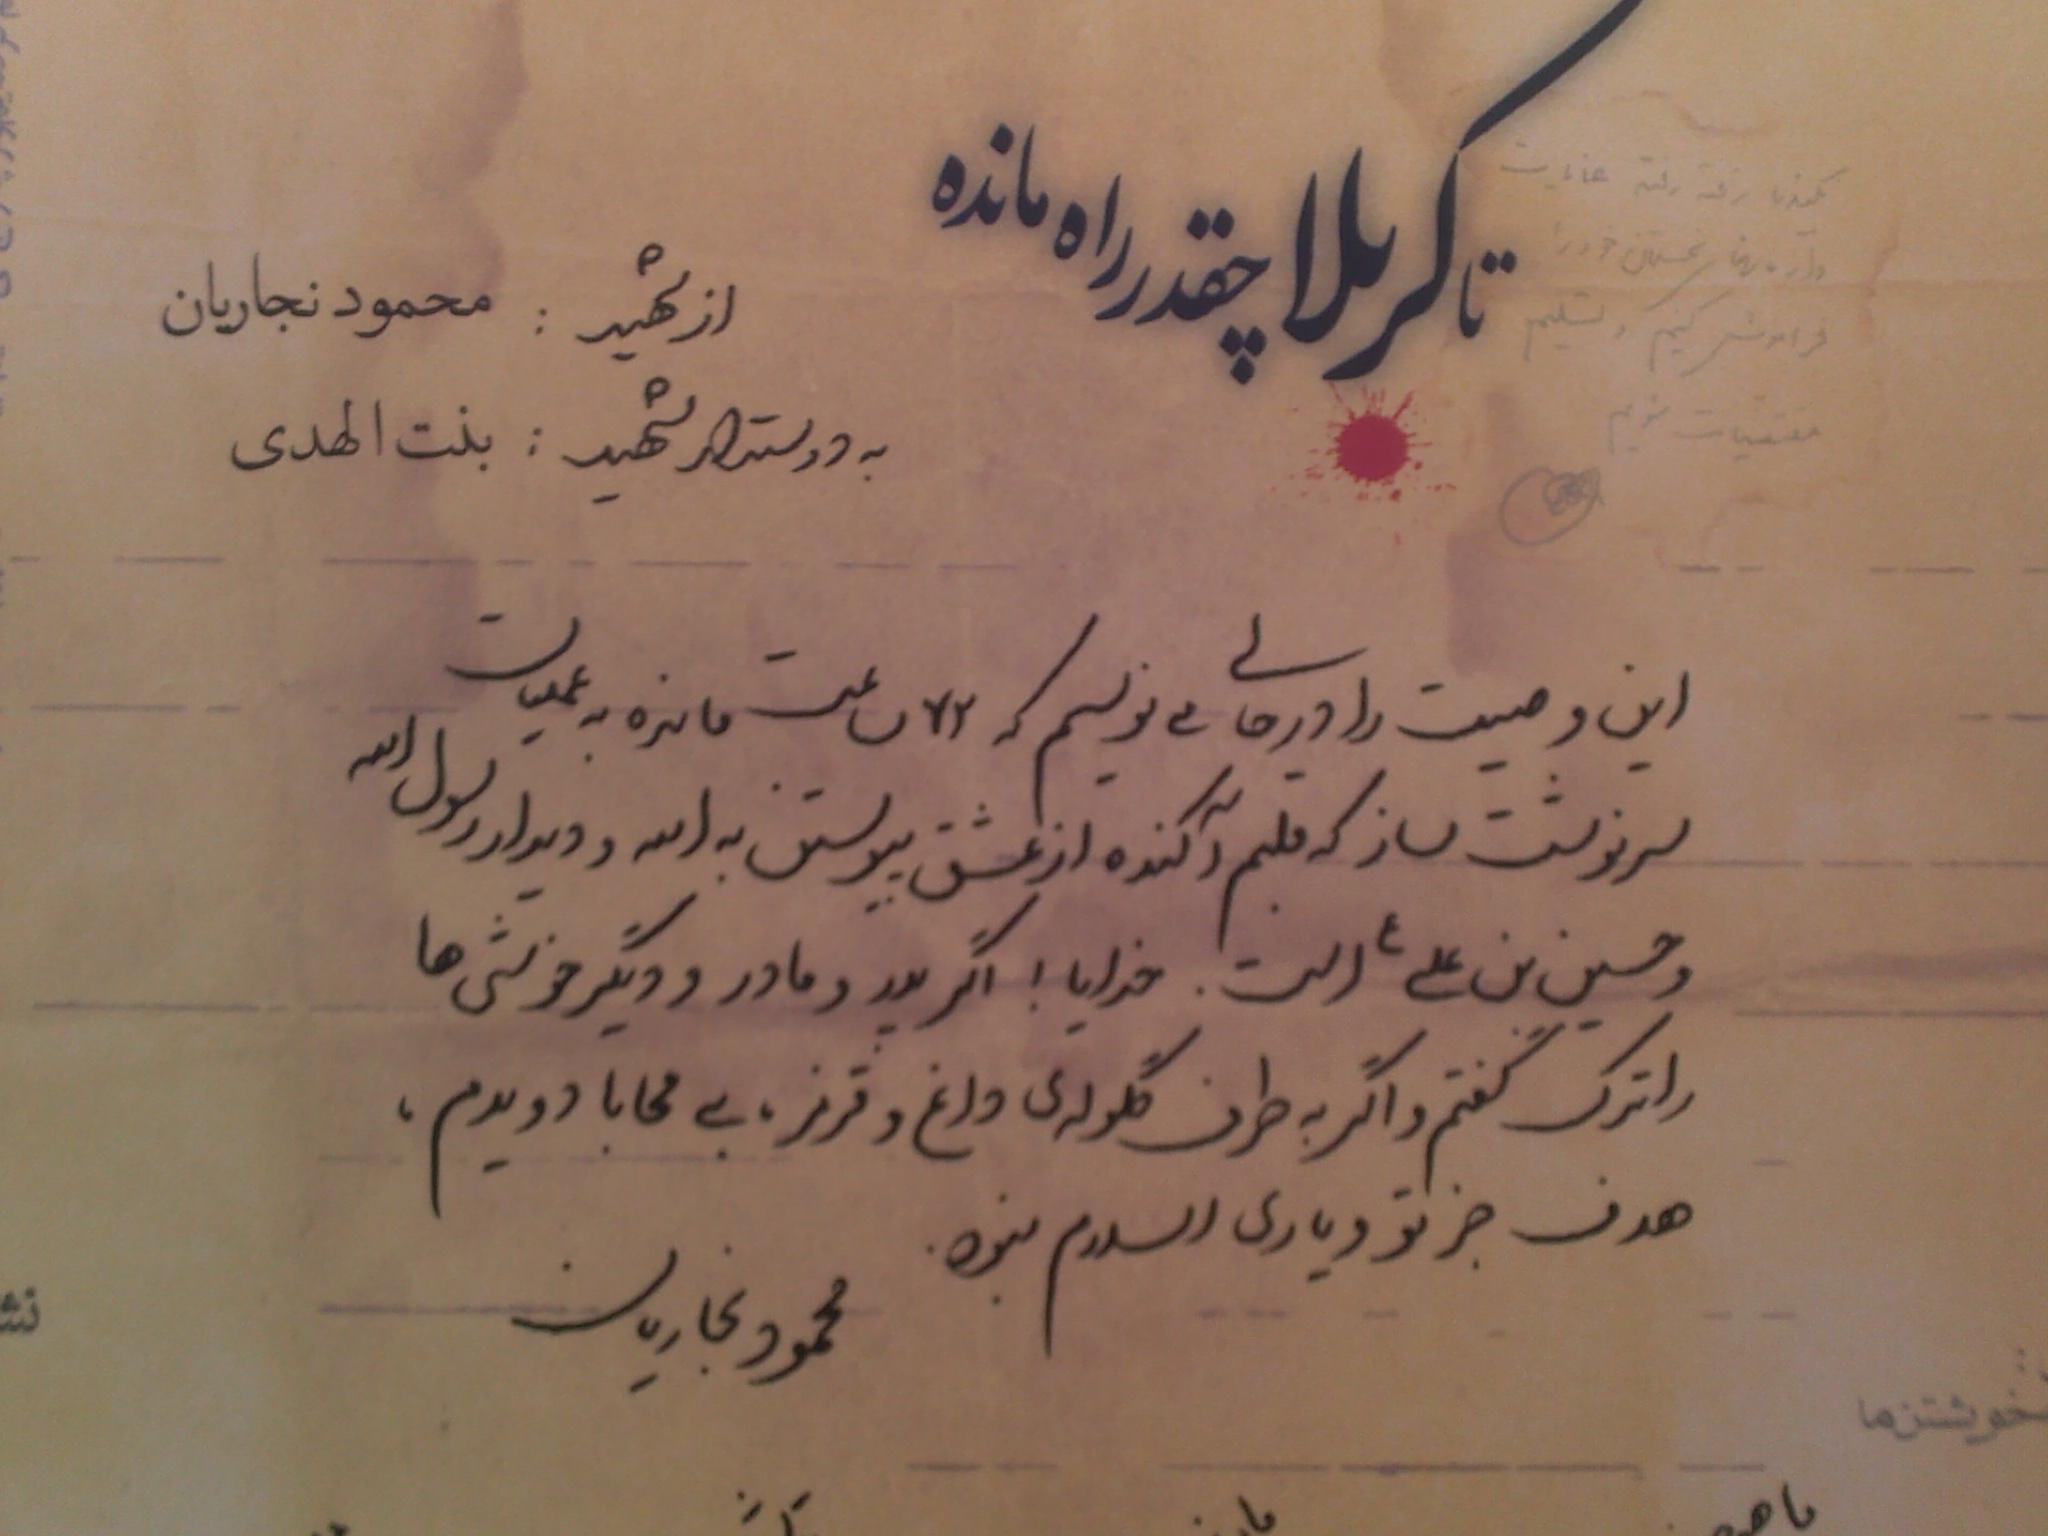 تا کربلا چقدر راه مانده
از شهید : محمود نجاریان
به دوستدار شهید : بنت الهدی
این وصیت را در حالی می نویسم که ۷۲ ساعت مانده به عملیات
سرنوشت ساز که قلبم آکنده از عشق پیوستن به الله و دیدار رسول الله
و حسین بن علی ع است. خدایا! اگر پدر و مادر و دیگر خوشی ها
را ترک گفتم و اگر به طرف گلوله ی داغ و قرمز، بی محابا دویدم،
هدف جز تو و یاری اسلام نبوده.
محمود نجاریان